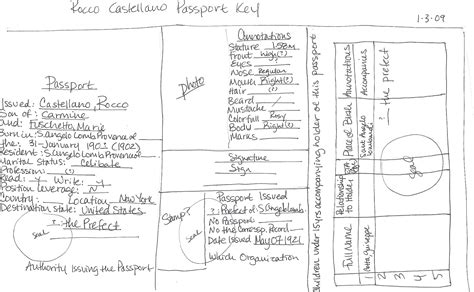 Rocco Castellano Passport Key
1-3-09
Passport
Issued: Castellano, Rocco
Son of: Carmine
And: Fuschetto, Marie
Born in: S. Angelo Lomb Provena of
the: 31-January 1903 (1902)
Resident: S. Angelo Lomb Provena of
Marital Status: Celibate
Profession: (?)
Read: Y Write: Y
Position Leverage: N
Country: Location New York
Destination State: United States
? = the Prefect
seal
Authority Issuing the Passport
photo
Stamp?
seal
Connotations
Stature 1.58m
Front
Eyes (?)
Nose Regular
Mouth Right(?)
Hair (?)
Beard
Mustache
Colorful Rosy
Body Right(?)
Marks
Signature
Sign
Passport Issued
?: Prefect of: S. Angelo Lomb.
No Passport
No the Corresp. Record
Date Issued May 07 1921
Which Organization
Children under 15yrs accompanying holder of this passport
Full Name
Relationship to Holder
Place of Birth
Annotations
Accompanies
Santa Angelo
the prefect
seal
1
2
3
4
5